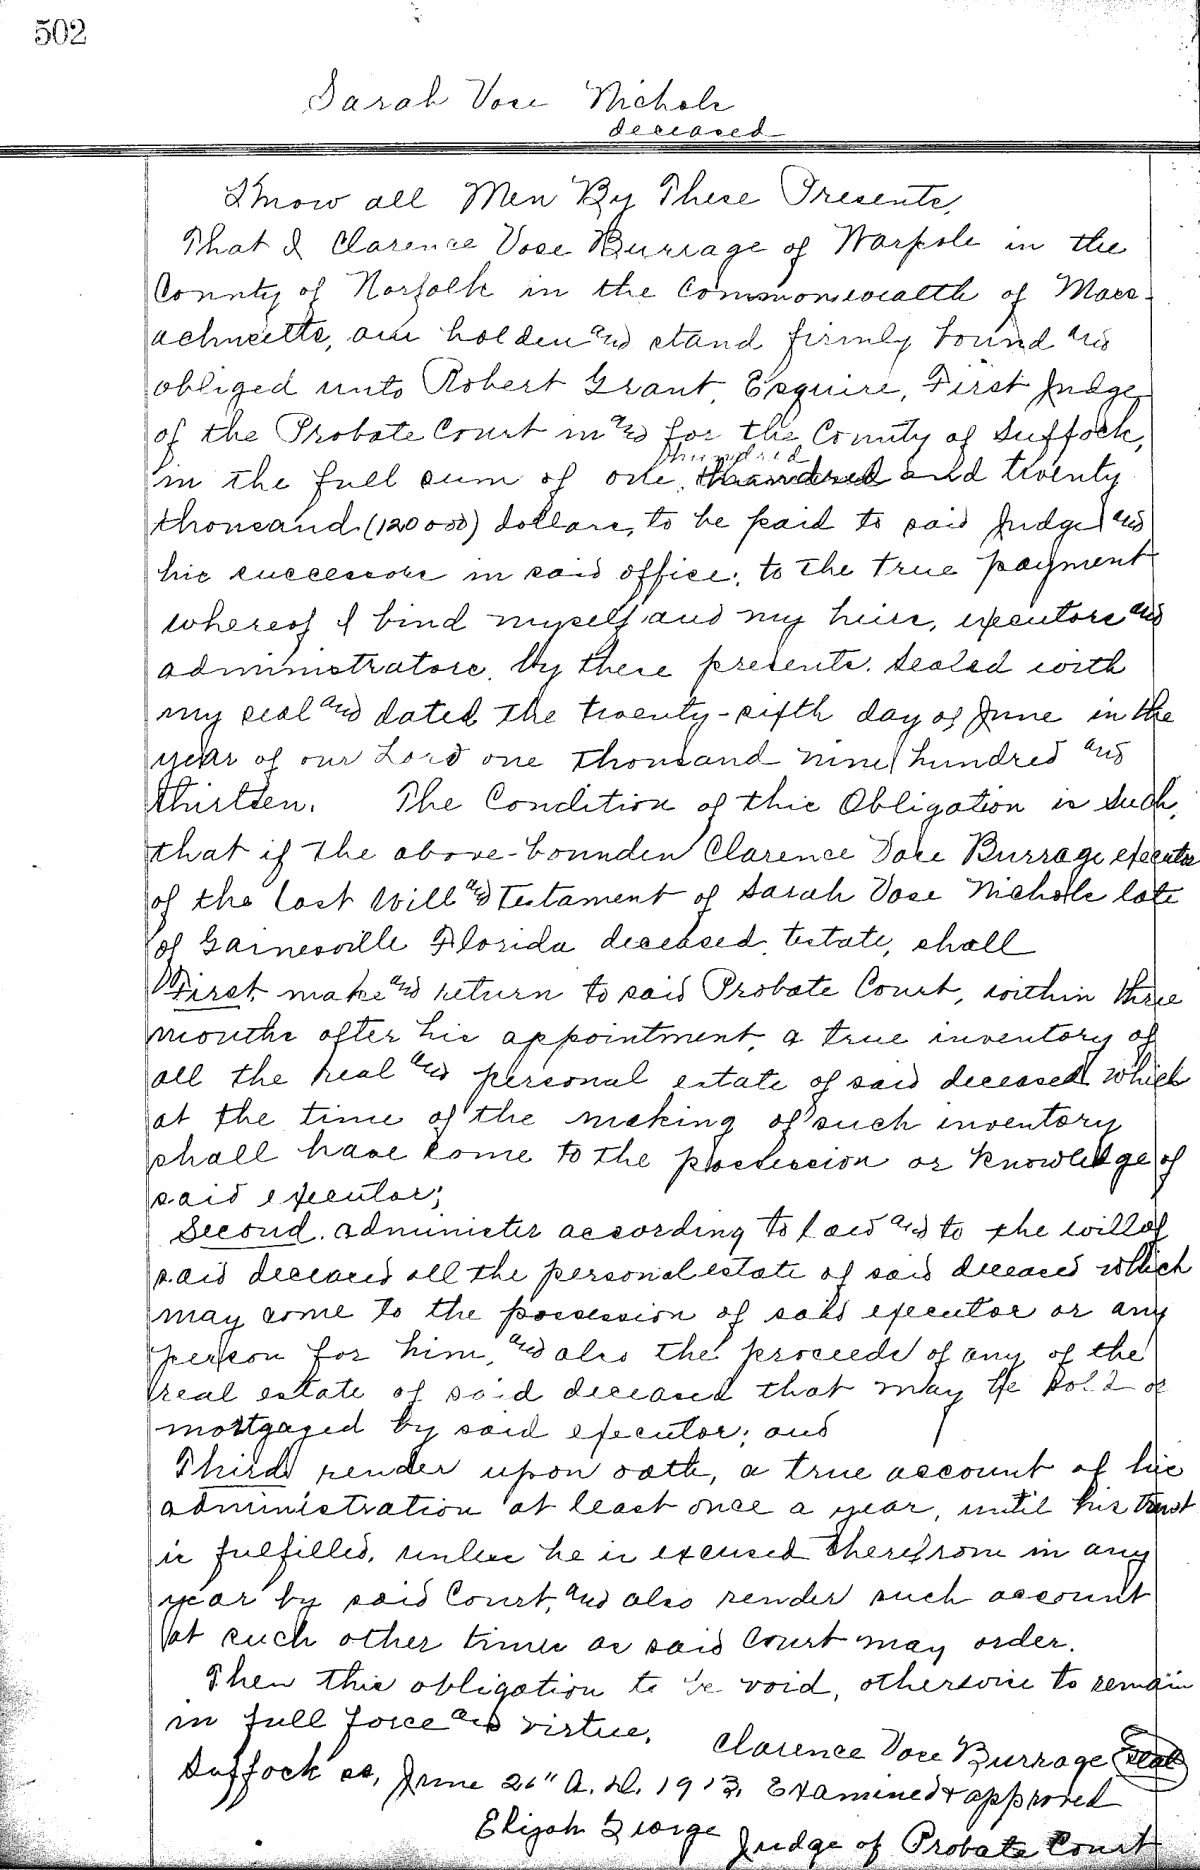 502
Sarah Vose Nichols
deceased
Know all Men By These Presents,
That I Clarence Vose Burrage of Warpole in the
County of Norfolk in the Commonwealth of Mass-
achusetts, am holden and stand firmly bound and
obliged unto Robert Grant, Esquire, First Judge
of the Probate Court in and for the County of Suffock,
hundred
in the full sum of one, hundred and twenty
thousand (120000) dollars, to be paid to said Judge and
his successors in said office; to the true payment
whereof I bind myself and my heirs, executors and
administrators, by these presents. Sealed with
my seal and dated the twenty-sixth day of June in the
year of our Lord one thousand nine hundred and
thirteen. The Condition of this Obligation is Such,
that if the above-bounden Clarence Vose Burrage executor
of the last Will and Testament of Sarah Vose Nichols late
of Gainesville Florida deceased, testate, shall
First, make and return to said Probate Court, within three
months after his appointment, a true inventory of
all the real and personal estate of said deceased which
at the time of the making of such inventory
shall have come to the possession or knowledge of
said executor;
Second. administer according to law and to the will of
said deceased all the personal estate of said deceased which
may come to the possession of said executor or any
person for him, and also the proceeds of any of the
real estate of said deceased that may be sold or
mortgaged by said executor; and
Third render upon oath, a true account of his
administration at least once a year, until his trust
is fulfilled, unless he is excused therefrom in any
year by said Court, and also render such account
at such other times as said Court may order.
Then this obligation to be void, otherwise to remain
in full force and virtue.
Clarence Vose Burrage Seal
Suffock ss, June 26" A. D. 1913. Examined & approved
Elijah George
Judge of Probate Court